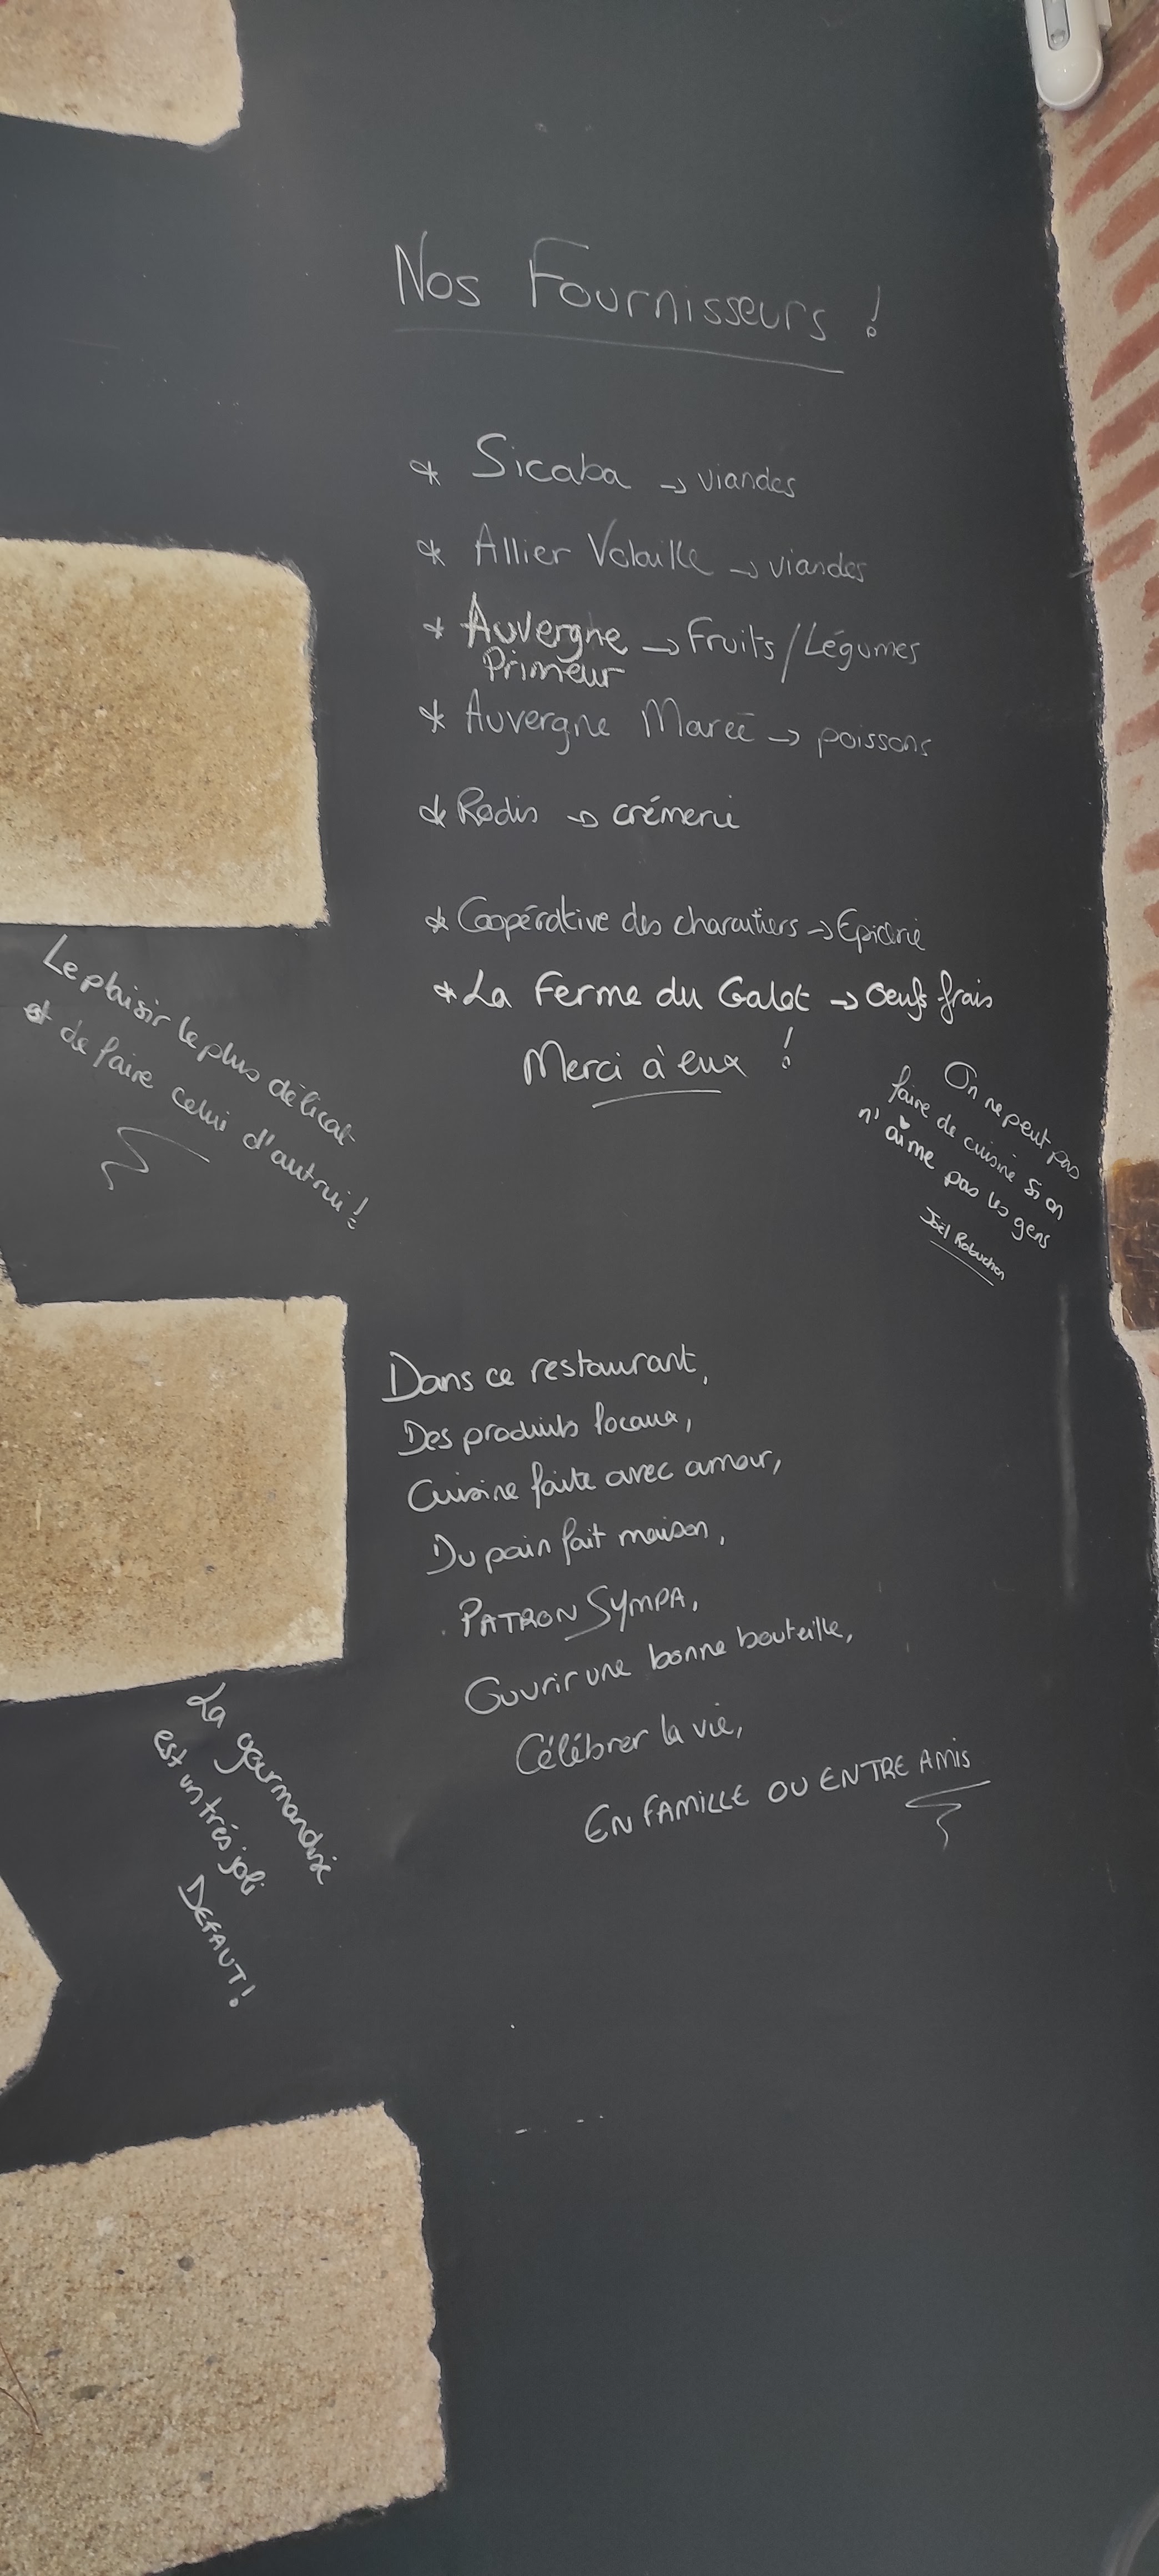 Nos Fournisseurs !
* Sicaba → viandes
* Allier Volaille → viandes
* Auvergne → Fruits / Légumes
Primeur
* Auvergne Mareé → poissons
* Rodis → crémerie
* Coopérative des charcutiers → Epicerie
* La Ferme du Galot → Oeufs frais
Merci à eux !
Le plaisir le plus délicat
est de faire celui d'autrui !
On ne peut pas
faire de cuisine si on
n'aime pas les gens
Joël Robuchon
Dans ce restaurant,
Des produits locaux,
Cuisine faite avec amour,
Du pain fait maison,
PATRON SYMPA,
Ouvrir une bonne bouteille,
Célébrer la vie,
EN FAMILLE OU ENTRE AMIS
La gourmandise
est un trés joli
DEFAUT !